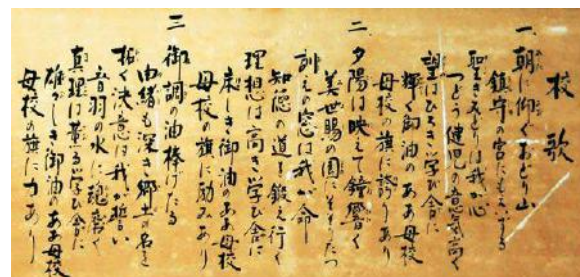 校歌
一、朝に仰ぐおとり山
鎮守の宮にもえ
聖きみどりは我が心
つどう健児の意気高く
望はひろき学び舎に
輝く御油のああ母校
母校の旗に誇りあり
二、夕陽は映えて鐘響く
美世賜の園にそそりたつ
訓えの窓は我が命
知徳の道を鍛え行く
理想は高き学び舎に
床しき御油のああ母校
母校の旗に励みあり
三 御調の油捧げたる
由緒も深き郷土の名を
拓く決意は我が誓い
音羽の水に魂磨く
真理は薫る学び舎に
雄々しき御油のああ母校
母校の旗に力あり